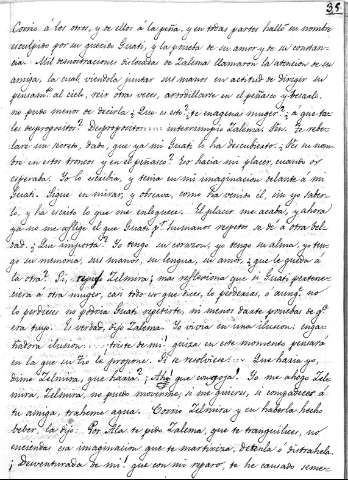 35
Corría á los otros, y de ellos á la peña, y en todas partes halló su nombre
esculpido por su querido Guati, y la prueba de su amor y de su constan-
cia. Mil demostraciones de Zalema llamaron la atencion de su
amiga, la cual viéndola juntar sus manos en actitud de dirigir su
pensamto. al cielo, reir otra vez, arrodillarse en el peñasco y besarle,
no pudo menor de decirla ¿Que es esto? te enagenas muger? ¿a que ta-
les despropósitos? Despropositos interrumpió Zalema. Sin. Te reve-
laré un secreto, dado, que ya mi Guati lo ha descubierto. ¿Vés su nom-
bre en estos troncos y en el peñasco? Lo hacia mi placer, cuanto
esperaba. Yo lo escribia, y tenia en mi imaginacion delante á mi
Guati. Sigue en mirar, y observa, como ha venido él, sin yo saber-
lo, y ha escrito lo que me enloquece. El placer me acaba; y ahora
ya no me aflige el que Guati pr. humanos respetos sea de á otra bel-
dad. ¿Que importa? Yo tengo su corazon, yo tengo su alma, yo ten-
go su memoria, sus manos, su lengua, su amor, ¿que le queda á
la otra? Si, repuso Zelmira; mas reflexiona que si Guati pertene-
ciera á otra muger, casi todo eso que dices, lo perderias, ó aunqe. no
lo perdieses no podria Guati repetirte, ni menos darte pruebas de qe.
era tuyo. Es verdad, dijo Zalema. Yo vivia en una ilusion, enga-
ñadora ilusion triste de mi! quizá en este momento pensará
en la que su Tio le propone. Si se resolviese Que haria yo,
dime Zelmira, que haria? ¡Ah! que congoja! Yo me ahogo Zel-
mira, Zelmira, no puedo moverme, si me quieres, si compadeces á
tu amiga traheme agua. Corrió Zelmira y en haberla hecho
beber, la dijo. Por Alá te pido Zalema, que te tranquilices, no
enciendas esa imaginacion que te martiriza, detenla ó distrahela.
¡Desventurada de mi! que con mi reparo, te he causado seme-